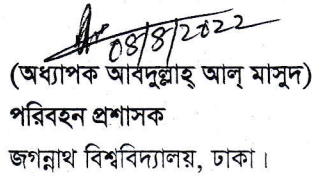 08/8/2022
(অধ্যাপক আবদুল্লাহ্ আল্ মাসুদ)
পরিবহন প্রশাসক
জগন্নাথ বিশ্ববিদ্যালয়, ঢাকা।